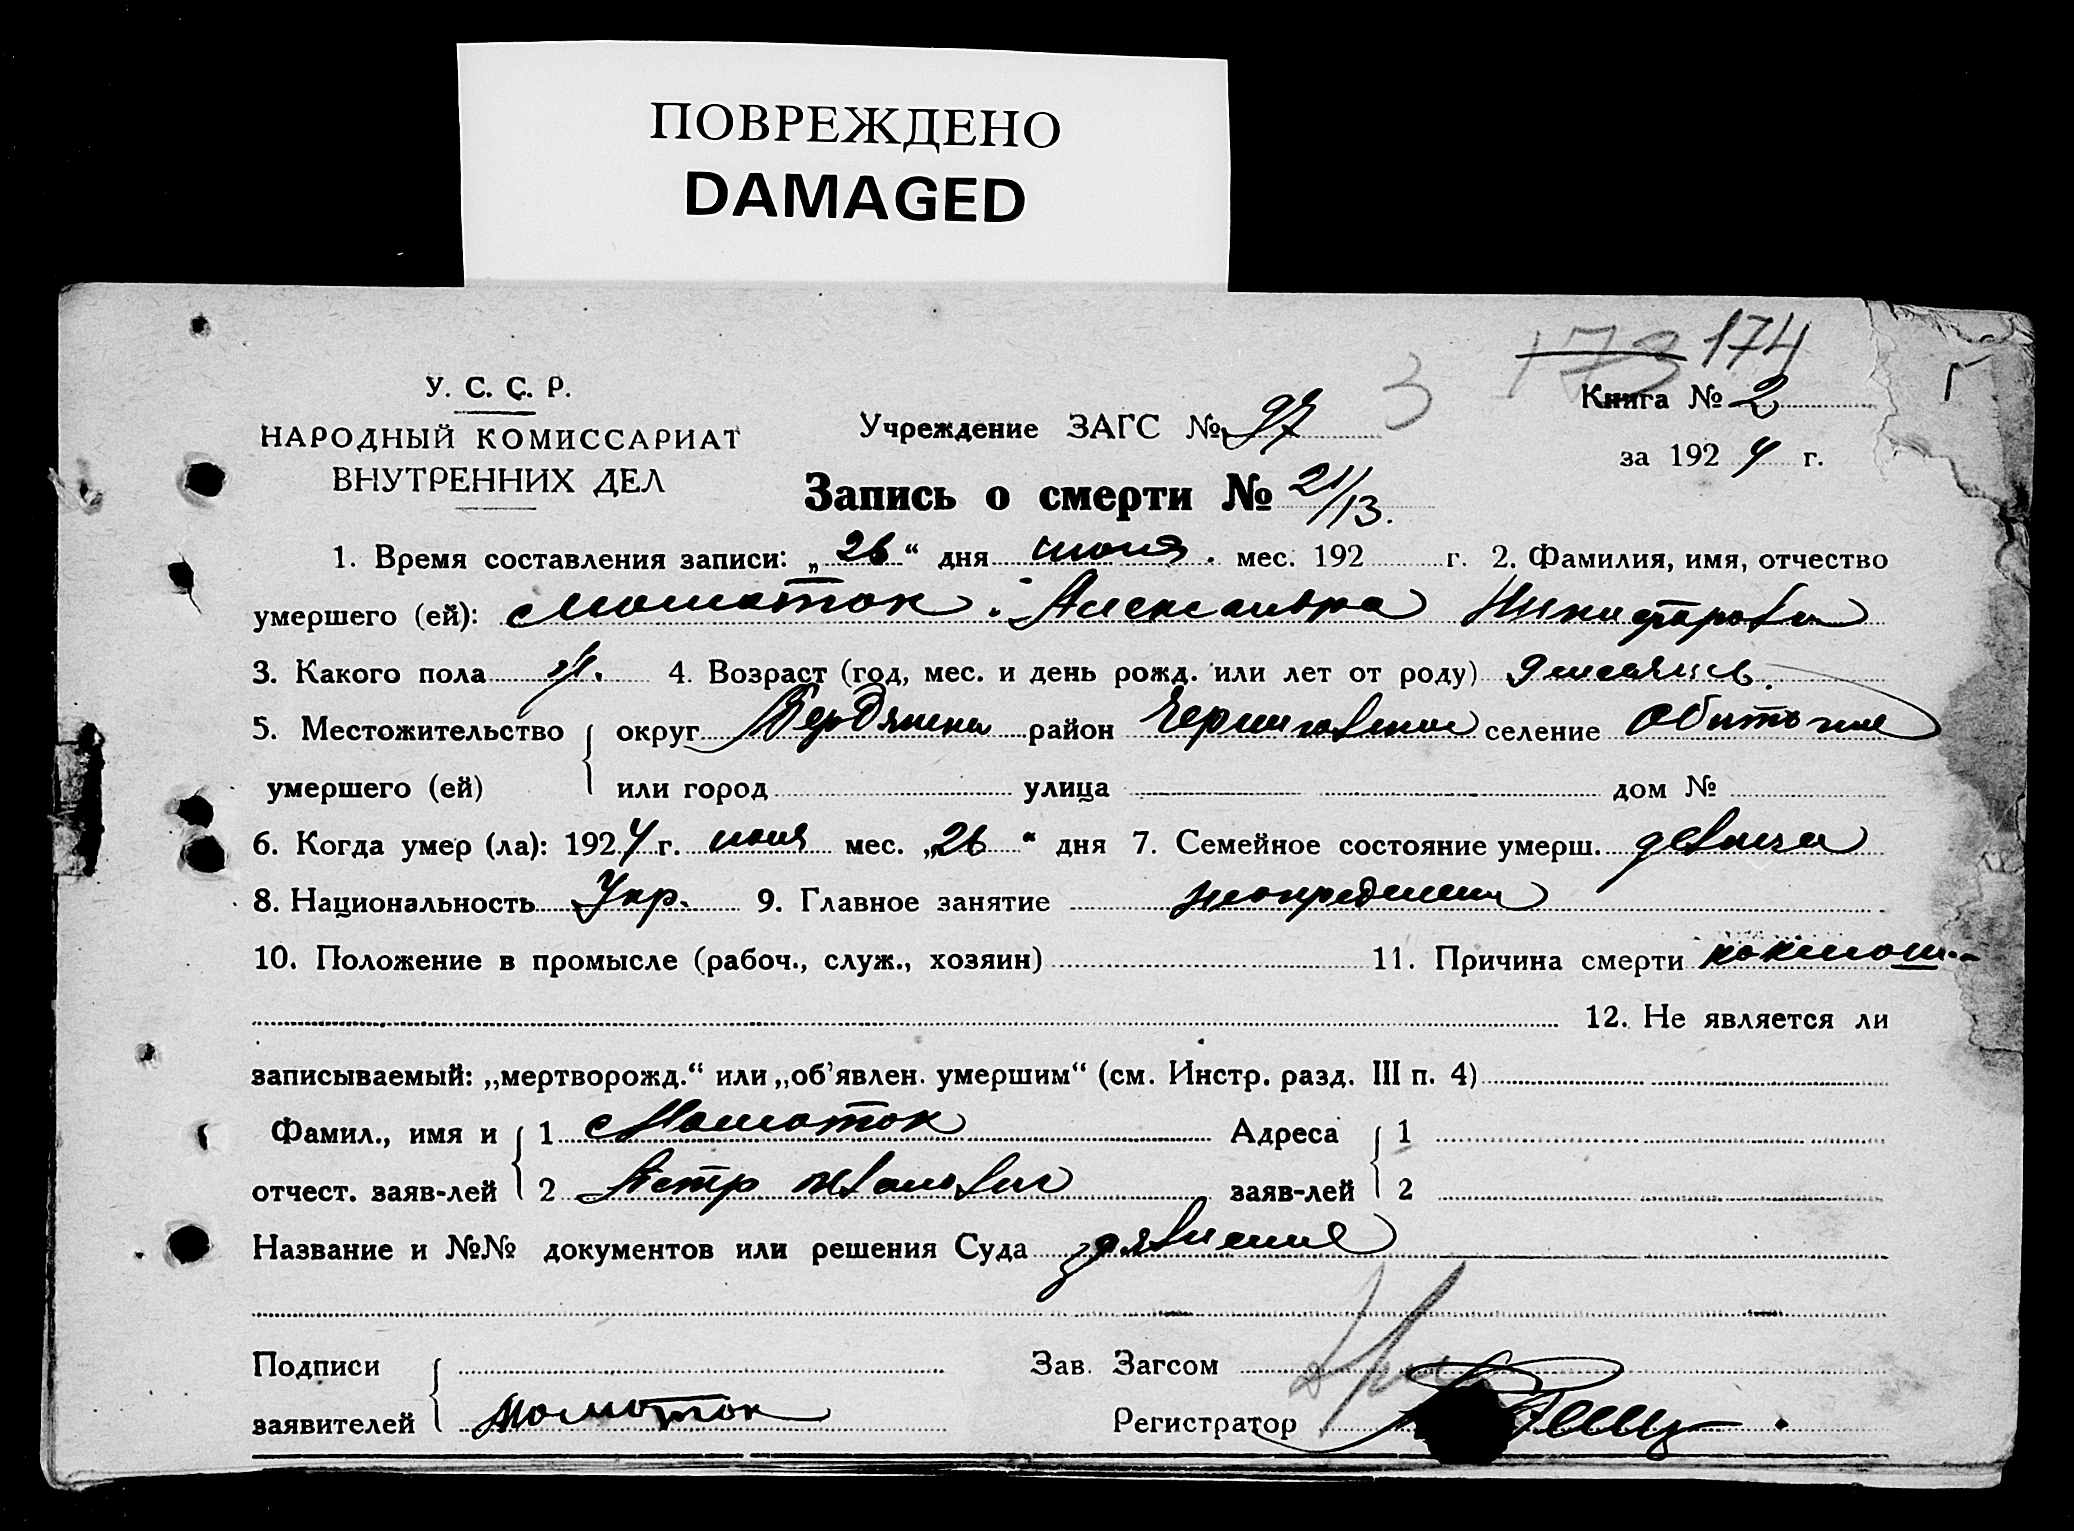 ПОВРЕЖДЕНО
DAMAGED
173 174
3
У. С. С. Р.
НАРОДНЫЙ КОМИССАРИАТ
ВНУТРЕННИХ ДЕЛ
Учреждение ЗАГС № 97
Книга № 2
за 1924 г.
Запись о смерти № 21/13.
1. Время составления записи: „26“ дня июня мес. 192 г. 2. Фамилия, имя, отчество
умершего (ей): Момоток Александра Никифоровн
3. Какого пола 4. Возраст (год, мес. и день рожд. или лет от роду) 9 месяцев.
5. Местожительство округ Бердянский район Черниговский селение Обиточное
умершего (ей) или город улица дом №
6. Когда умер (ла): 1924 г. июня мес. „26“ дня 7. Семейное состояние умерш. девица
8. Национальность Укр. 9. Главное занятие
10. Положение в промысле (рабоч., служ., хозяин) 11. Причина смерти коклюш
12. Не является ли
записываемый: „мертворожд.“ или „об'явлен. умершим“ (см. Инстр. разд. III п. 4)
Фамил., имя и 1 Момоток Адреса 1
отчест. заяв-лей 2 Петр Иванович заяв-лей 2
Название и №№ документов или решения Суда заявление
Подписи Зав. Загсом
заявителей Момоток Регистратор